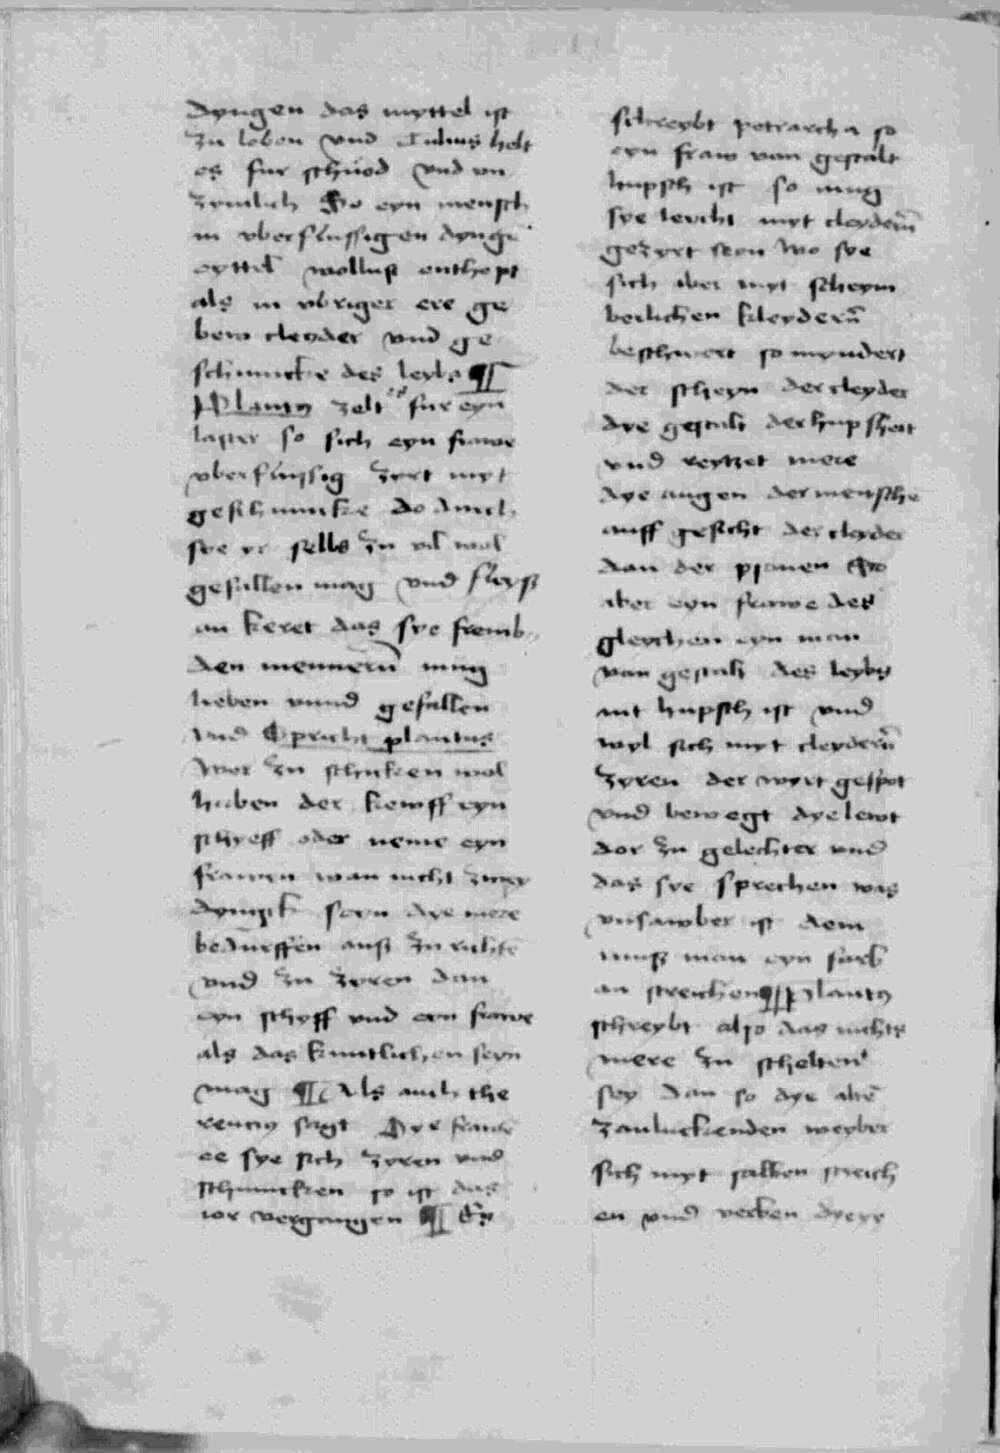 dyngen das myttel ist
zu loben vnd Tulius helt
es fur schnod vnd vn
zymlich So eyn mensch
in vberflussigen dynge
eyttel wollust enthept
als in vbriger ere ge
bew cleyder vnd ge
schmucke des leybs ¶
Plautus zelt es fur eyn
laster so sich eyn frawe
vberflussig zyrt myt
geschmucke do durch
sye yr selbs zu vil wol
gefallen mag vnd fleyß
an keret das sye fremb
den mennern mug
lieben vnnd gefallen
vnd Spricht plautus
Wer zu schicken wol
haben der kewff eyn
schyeff oder neme eyn
frawen wan nicht zwey
dynck seyn dye mere
bedurffen auß zu richte
vnd zu zyren dan
eyn schyff vnd eyn frawe
als das kuntlichen seyn
mag ¶ Als auch the
rencius sagt Dye frawe
ee sye sich zyren vnd
schmucken so ist das
ior vergangen ¶ Es
schreybt petrarcha so
eyn fraw van gestalt
hupsch ist so mug
sye leycht myt cleydern
gezyrt seyn Wo sye
sich aber myt scheyn
berlichen kleydern
beschwert so myndert
der scheyn der cleyder
dye gestalt der hupsheit
vnd reytzet mere
dye augen der mensche
auff gesicht der cleyder
dan der psonen So
aber eyn frawe des
gleychen eyn man
van gestalt des leybs
nit hupsch ist vnd
wyl sich myt cleydern
zyren der wyrt gespot
vnd bewegt dye lewt
dor zu gelechter vnd
das sye sprechen was
vnsawber ist dem
muß man eyn farb
an streichen ¶ Plautus
schreybt also das nichts
mere zu schelten
sey dan so dye alte
zanluckenden weyber
sich myt salben streich
en vnd verben dyeyr